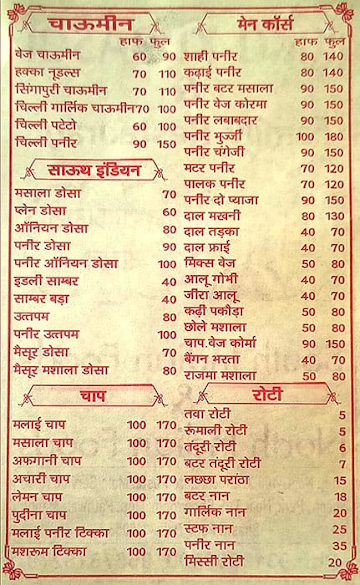 चाऊमीन
हाफ फुल
वेज चाऊमीन 60 90
हक्का नूडल्स 70 110
सिंगापुरी चाऊमीन 70 110
चिल्ली गार्लिक चाऊमीन 70 100
चिल्ली पटेटो 60 100
चिल्ली पनीर 90 150
साऊथ इंडियन
मसाला डोसा 70
प्लेन डोसा 60
ऑनियन डोसा 80
पनीर डोसा 90
पनीर ऑनियन डोसा 100
इडली साम्बर 40
साम्बर बड़ा 40
उत्तपम 80
पनीर उत्तपम 100
मैसूर डोसा 70
मैसूर मशाला डोसा 80
चाप
मलाई चाप 100 170
मसाला चाप 100 170
अफगानी चाप 100 170
अचारी चाप 100 170
लेमन चाप 100 170
पुदीना चाप 100 170
मलाई पनीर टिक्का 100 170
मशरूम टिक्का 100 170
मेन कॉर्स
हाफ फुल
शाही पनीर 80 140
कढ़ाई पनीर 80 140
पनीर बटर मसाला 90 150
पनीर वेज कोरमा 90 150
पनीर लबाबदार 90 150
पनीर भुर्ज्जी 100 180
पनीर चंगेजी 90 150
मटर पनीर 70 120
पालक पनीर 70 120
पनीर दो प्याजा 90 150
दाल मखनी 80 130
दाल तड़का 40 70
दाल फ्राई 40 70
मिक्स वेज 50 80
आलू गोभी 40 70
जीरा आलू 40 70
कढ़ी पकौड़ा 50 80
छोले मशाला 50 80
चाप.वेज कोर्मा 90 150
बैंगन भरता 40 70
राजमा मशाला 50 80
रोटी
तवा रोटी 5
रूमाली रोटी 5
तंदूरी रोटी 6
बटर तंदूरी रोटी 7
लछछा परांठा 15
बटर नान 18
गार्लिक नान 20
स्टफ नान 25
पनीर नान 35
मिस्सी रोटी 20